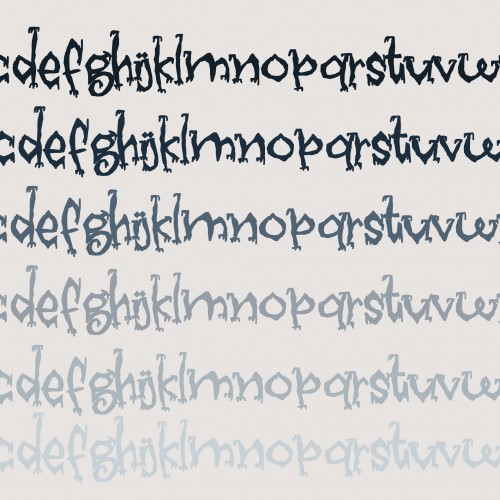 cdefghijklmnopqrstuvw
cdefghijklmnopqrstuvw
cdefghijklmnopqrstuvw
cdefghijklmnopqrstuvw
cdefghijklmnopqrstuvw
cdefghijklmnopqrstuvw